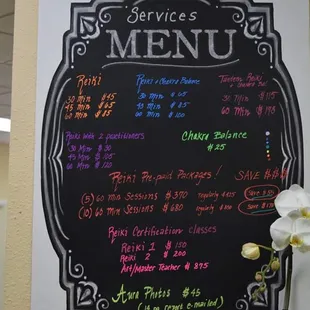 Services
MENU
Reiki
30 Min $45
45 Min $65
60 Min $85
Reiki + Chakra Balance
30 Min
45 Min
60 Min
Tandem Reiki
30 Min $115
60 Min
Reiki with 2 practitioners
30 Min
45 Min $105
60 Min $120
Chakra Balance
$25
Reiki Pre-paid Packages! SAVE
(5) 60 min Sessions $370 regularly Save
(10) 60 min Sessions $680 regularly
Reiki Certification classes
Reiki 1 $150
Reiki 2 $
Art/Master Teacher $875
Aura Photos $45
e-mailed)